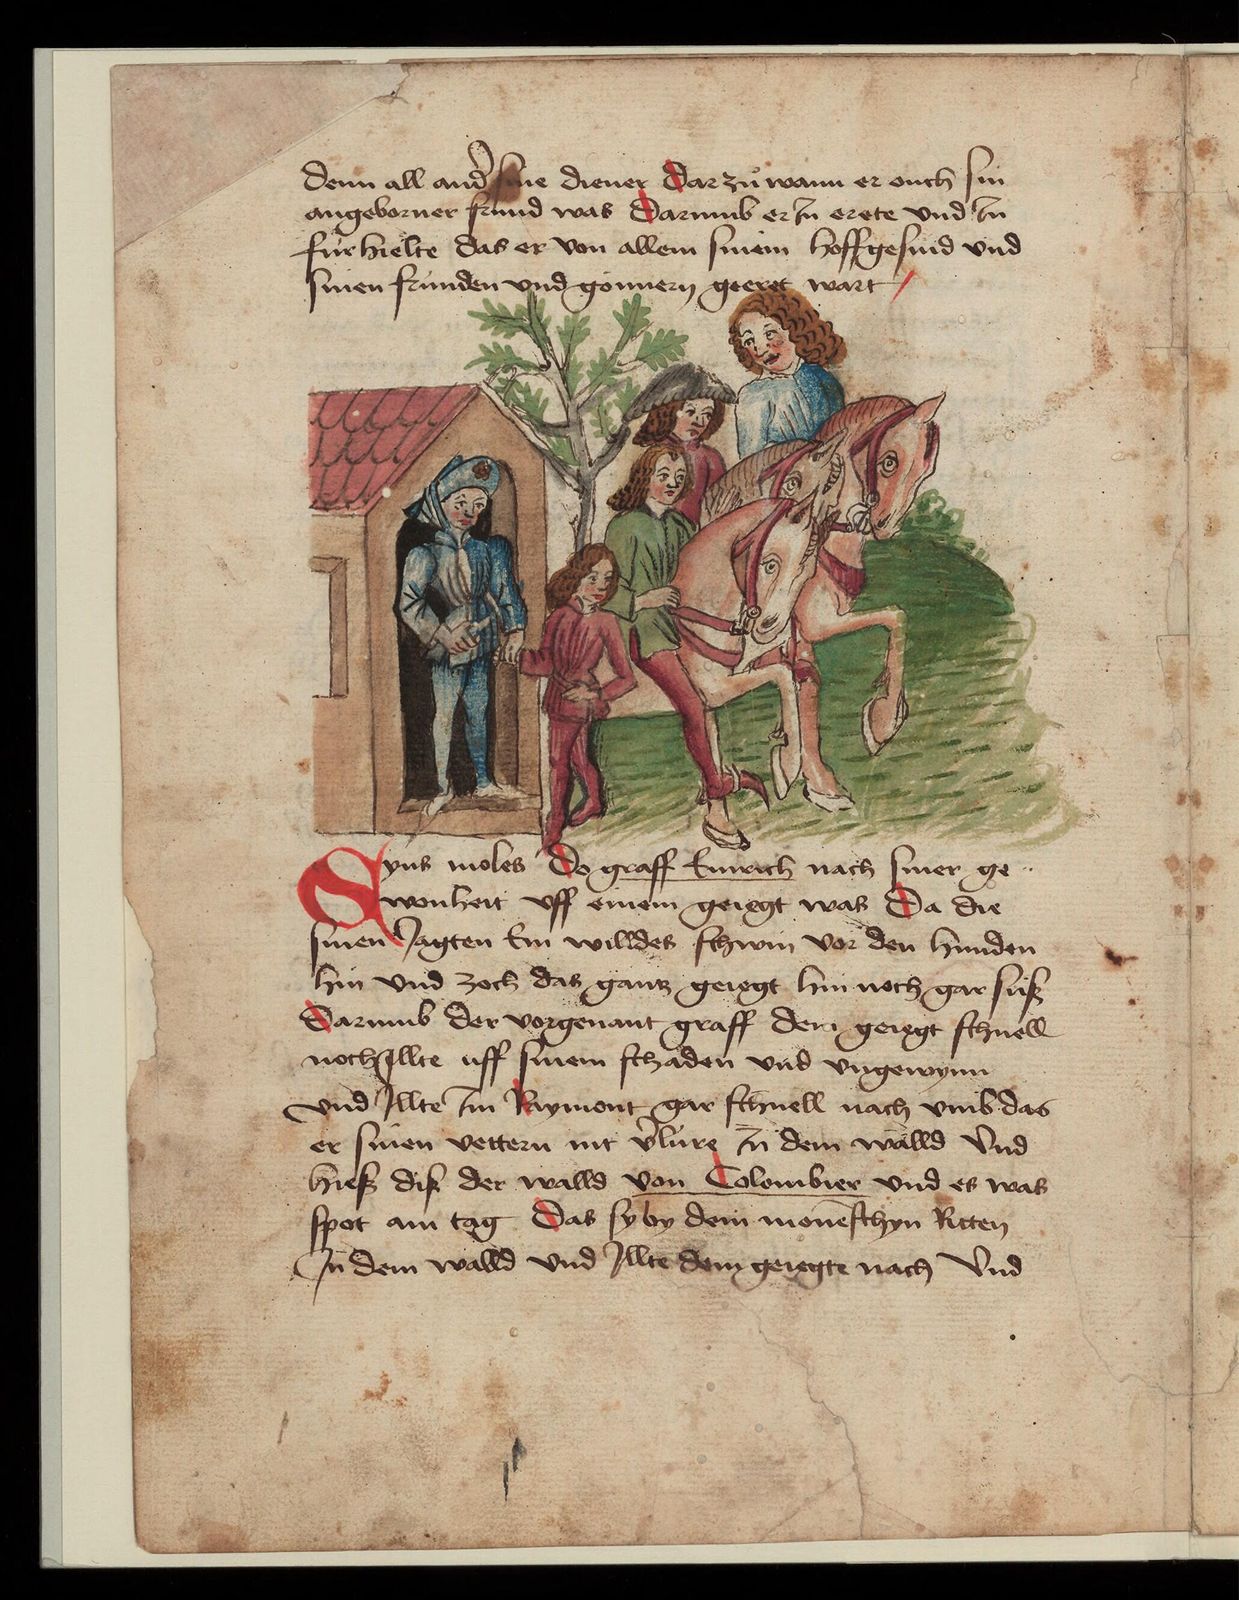 denn all and̕ sine diener Dar zuͦ wann er ouch sin
angeborner frund was Darumb er In erete vnd In
fúr hielte das er von allem sinem hoffgesind vnd
sinen frúnden vnd gonnern geeret wart /
Syns moles Do graff Emrich nach siner ge
wonheit vff einem geiegt was Da die
sinen Jagten Ein willdes schwin vor den hunden
hin vnd zoch das gantz geiegt hin noch gar suß
Darumb der vorgenant graff dem geiegt schnell
noch Illte uff sinem schaden vnd vngewynn
vnd Illte Im Raymont gar schnell nach vmb das
er sinen vettern nit v̕lúre In dem walld Vnd
hieß diß der walld von Colombier vnd es was
spot am tag Das sy by dem moneschyn Ritten
In dem walld vnd Illte dem geiegte nach Vnd